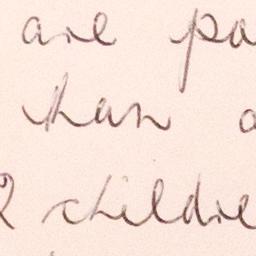 are pa
than a
2 childre